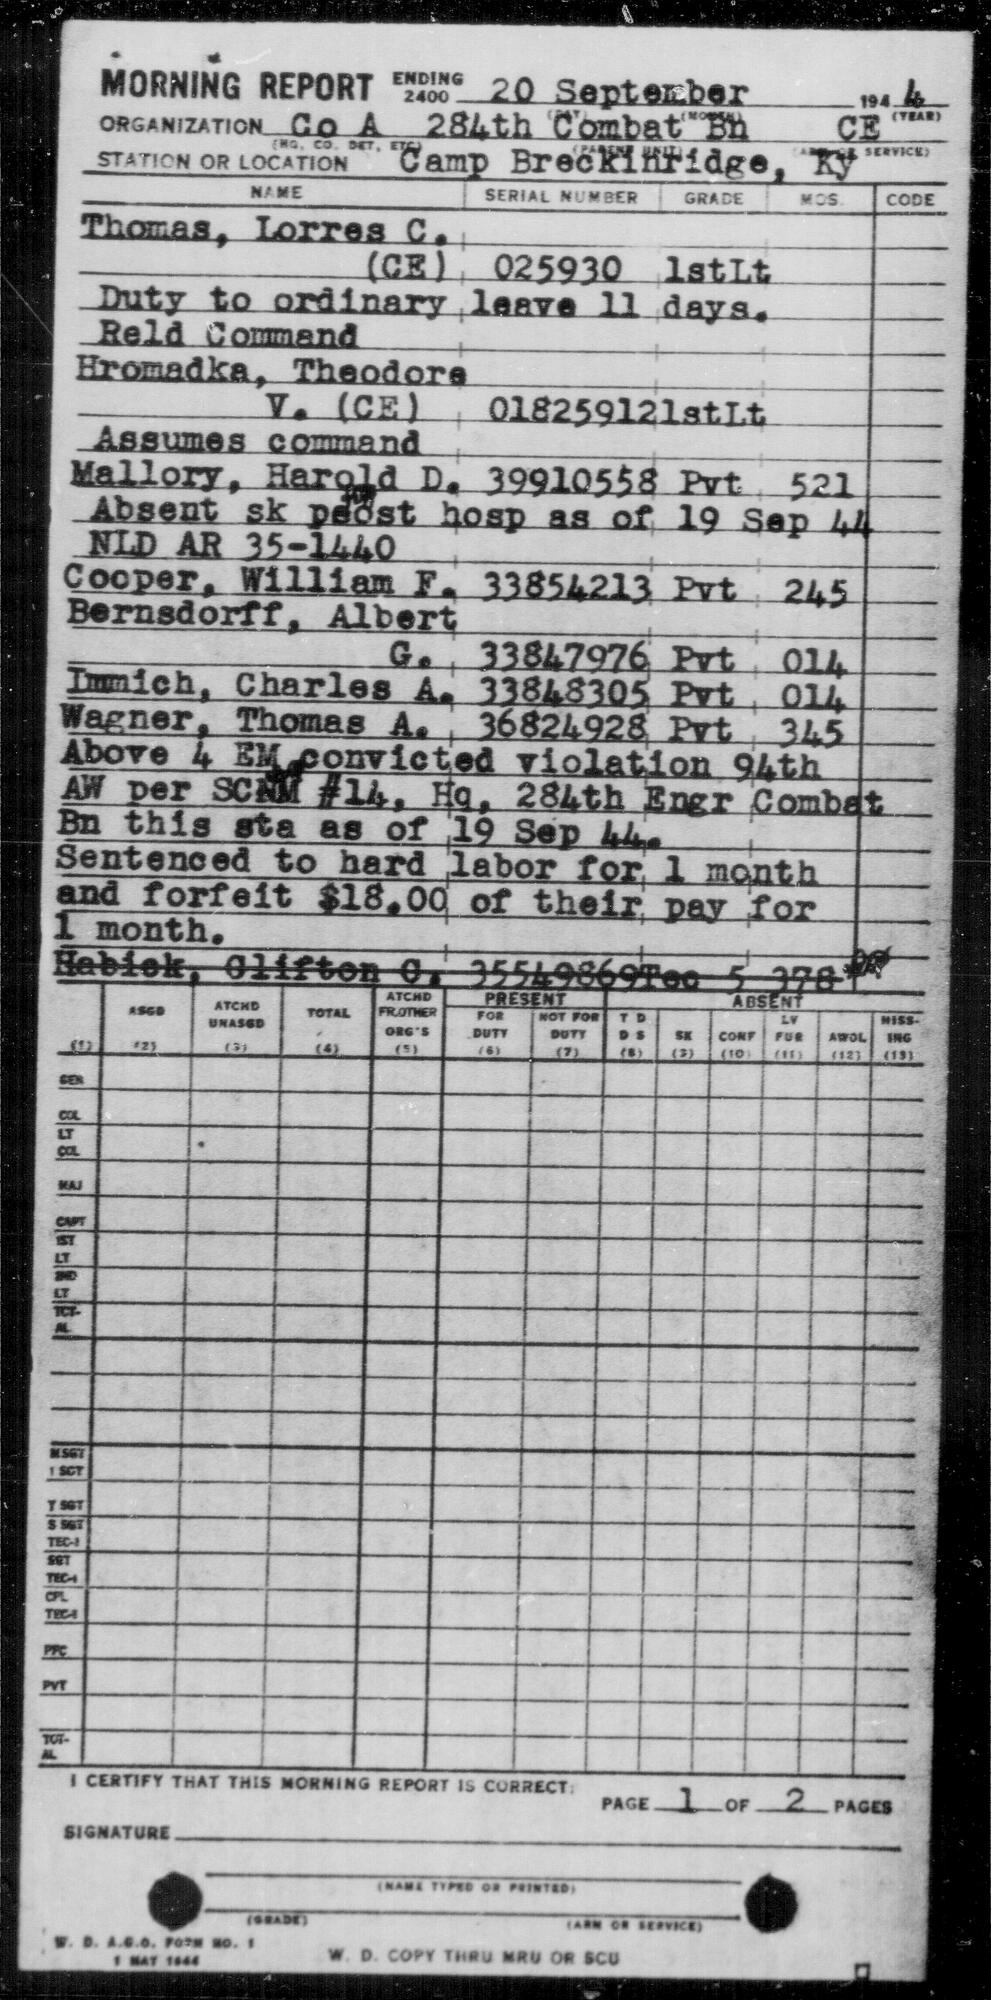 MORNING REPORT ENDING 2400 20 September 1944
(DAY) (MONTH) (YEAR)
ORGANIZATION Co A 284th Combat Bn CE
(HQ, CO. DET, ETC) (PARENT UNIT) (ARM OR SERVICE)
STATION OR LOCATION Camp Breckinridge, Ky
NAME SERIAL NUMBER GRADE MOS. CODE
Thomas, Lorres C.
(CE) 025930 1stLt
Duty to ordinary leave 11 days.
Reld Command
Hromadka, Theodore
V. (CE) 01825912 1stLt
Assumes command
Mallory, Harold D. 39910558 Pvt 521
Absent sk post hosp as of 19 Sep 44
NLD AR 35-1440
Cooper, William F. 33854213 Pvt 245
Bernsdorff, Albert
G. 33847976 Pvt 014
Immich, Charles A. 33848305 Pvt 014
Wagner, Thomas A. 36824928 Pvt 345
Above 4 EM convicted violation 94th
AW per SCM #14, Hq, 284th Engr Combat
Bn this sta as of 19 Sep 44.
Sentenced to hard labor for 1 month
and forfeit $18.00 of their pay for
1 month.
Habick, Clifton C. 35549869 Tec 5 378
ASGD ATCHD UNASGD TOTAL ATCHD FR.OTHER ORG'S PRESENT ABSENT
FOR DUTY NOT FOR DUTY T D D S SK CONF LV FUR AWOL MISSING
(1) (2) (3) (4) (5) (6) (7) (8) (9) (10) (11) (12) (13)
GEN
COL
LT
COL
MAJ
CAPT
1ST
LT
2ND
LT
TOT-
AL
M SGT
1 SGT
T SGT
S SGT
TEC-3
SGT
TEC-4
CPL
TEC-5
PFC
PVT
TOT-
AL
I CERTIFY THAT THIS MORNING REPORT IS CORRECT:
PAGE 1 OF 2 PAGES
SIGNATURE
(NAME TYPED OR PRINTED)
(GRADE) (ARM OR SERVICE)
W. D. A.G.O. FORM NO. 1
1 MAY 1944
W. D. COPY THRU MRU OR SCU